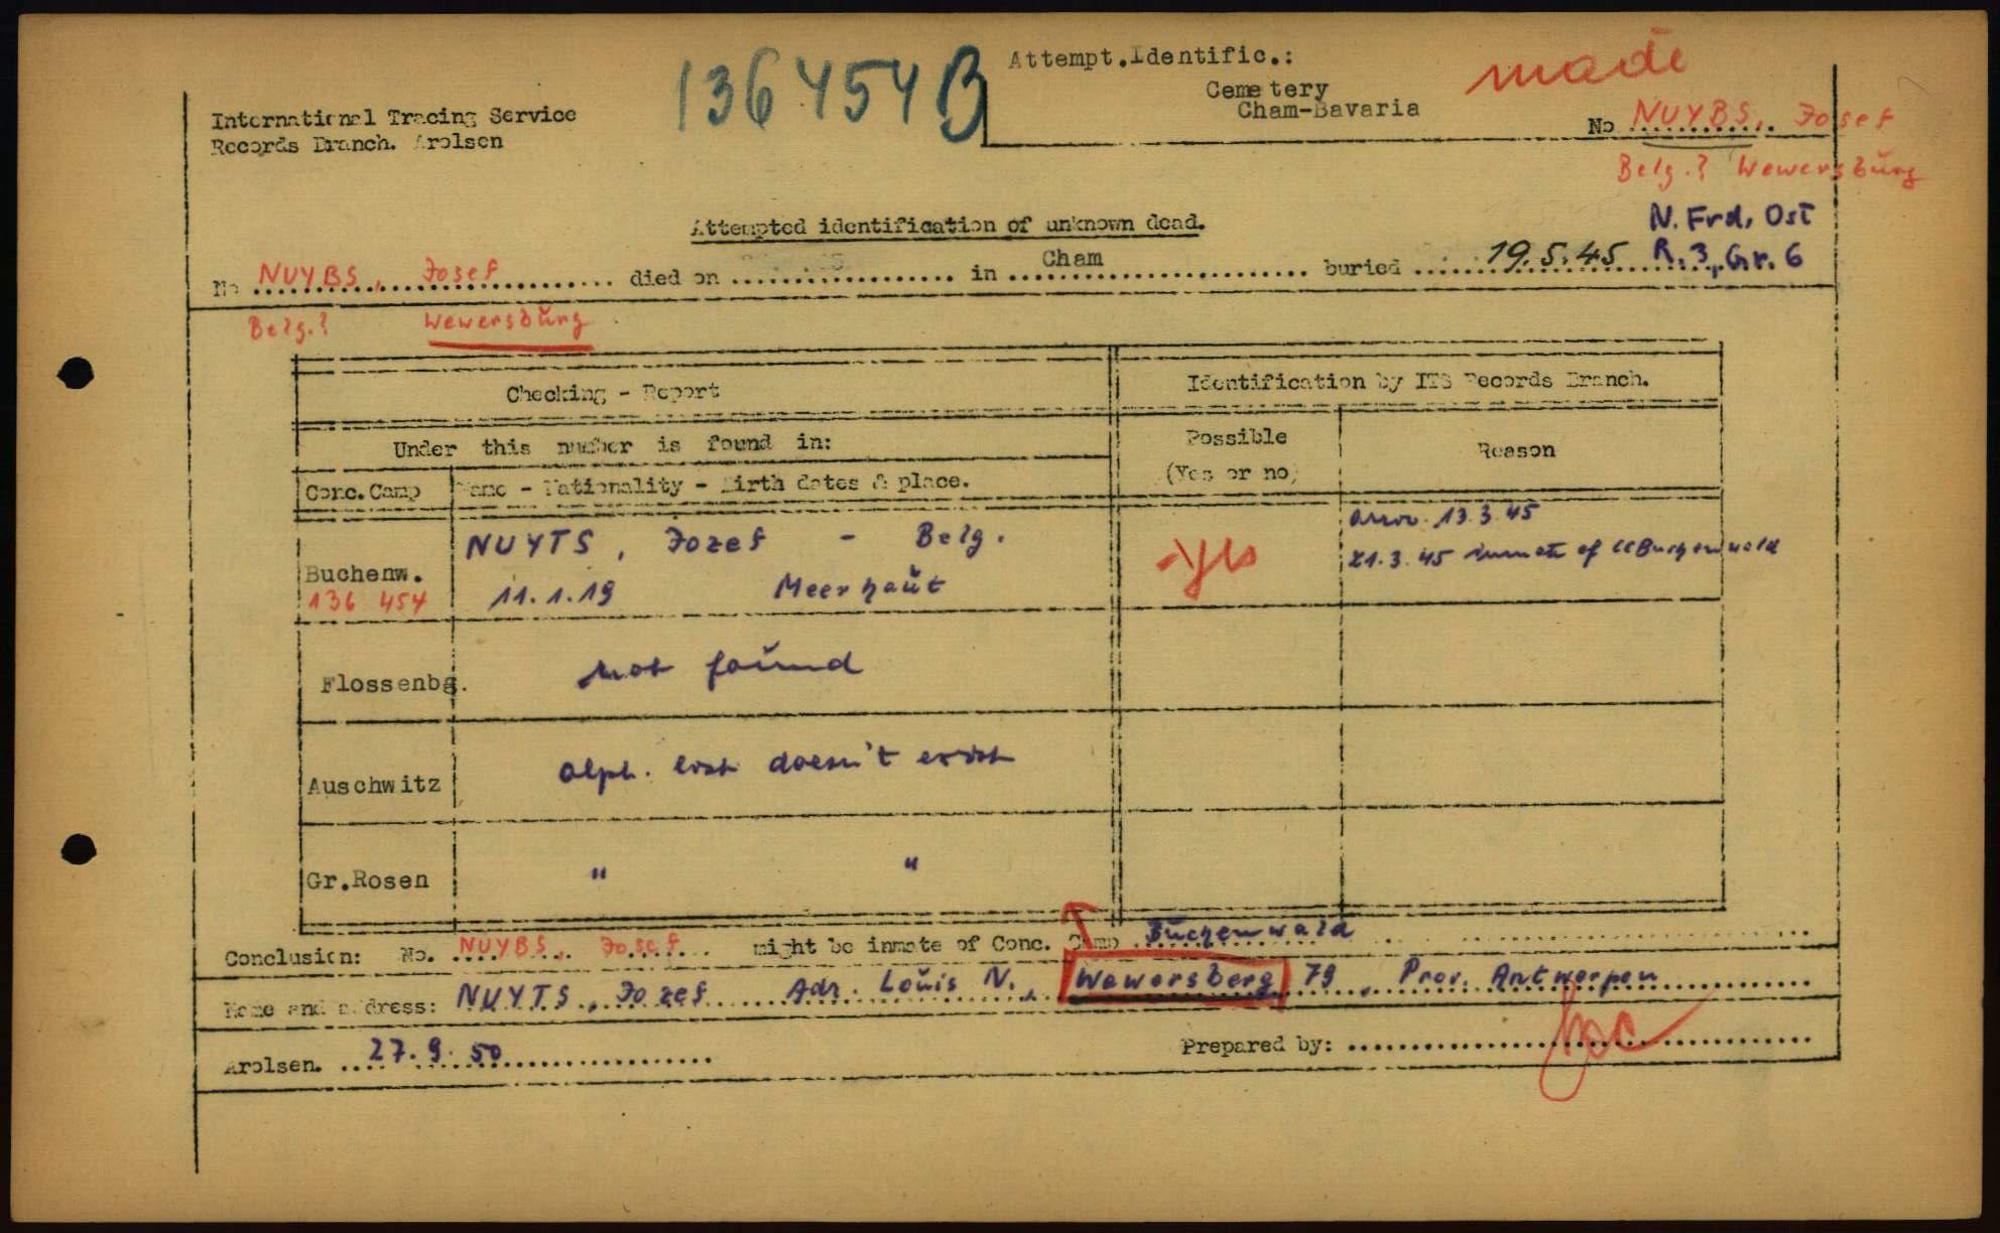 136454 B
Attempt.Identific.:
Cemetery
Cham-Bavaria
made
International Tracing Service
Records Branch. Arolsen
No NUYBS, Josef
Belg.? Wewersburg
Attempted identification of unknown dead.
N. Frd. Ost
R.3, Gr. 6
No NUYBS, Josef died on in Cham buried 19.5.45
Belg.? Wewersburg
Checking - Report
Identification by ITS Records Branch.
Under this number is found in:
Possible
(Yes or no)
Reason
Conc.Camp
Name - Nationality - Birth dates & place.
Buchenw.
136 454
NUYTS, Jozef - Belg.
11.1.19 Meerhaut
yes
arriv. 13.3.45
21.3.45 inmate of CC Buchenwald
Flossenbg.
not found
Auschwitz
alph. list doesn't exist
Gr.Rosen
" "
Conclusion: No. NUYBS, Josef might be inmate of Conc. Camp Buchenwald
Name and address: NUYTS, Jozef Adr. Louis N., Wewersberg 79, Prov. Antwerpen
Arolsen. 27.9.50
Prepared by: